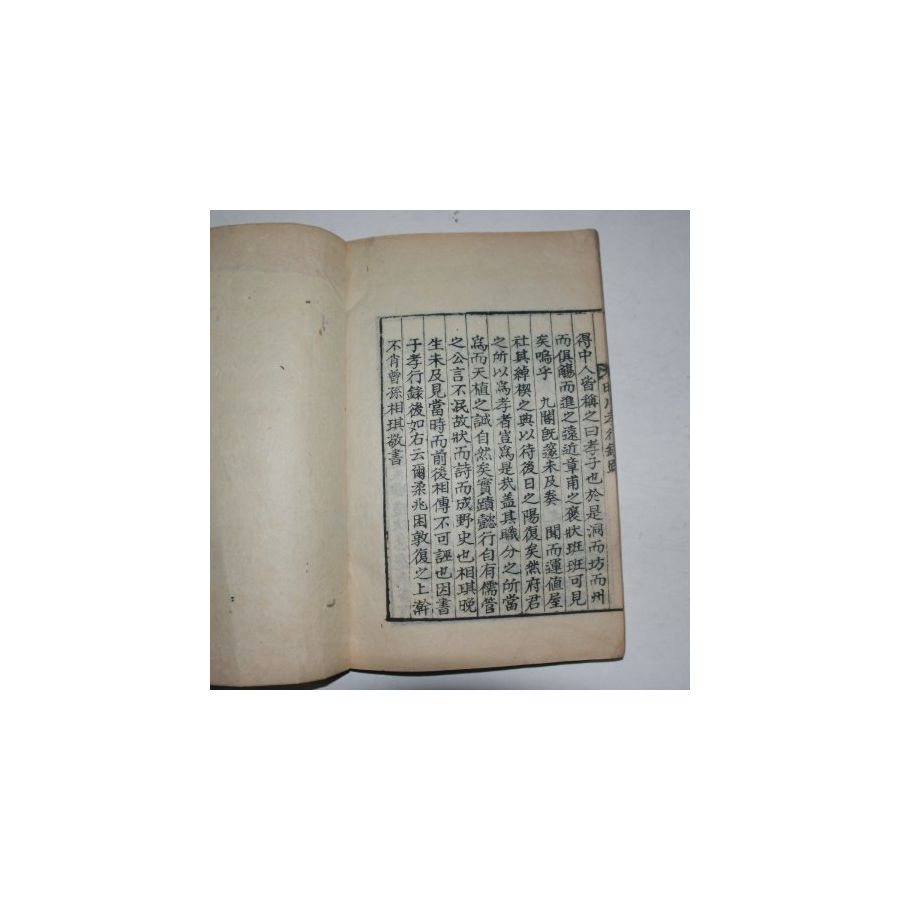 得中人皆稱之曰孝子也於是洞而坊而州
而俱觴而進之遠近章甫之褒狀班班可見
矣嗚乎 九閽旣邃未及奏 聞而運値屋
社其綽楔之典以待後日之陽復矣然府君
之所以爲孝者豈爲是哉盖其職分之所當
爲而天植之誠自然矣實蹟懿行自有儒管
之公言不泯故狀而詩而成野史也相琪晩
生未及見當時而前後相傳不可誣也因書
于孝行錄後如右云爾柔兆困敦復之上澣
不肖曾孫相琪敬書
孝行錄